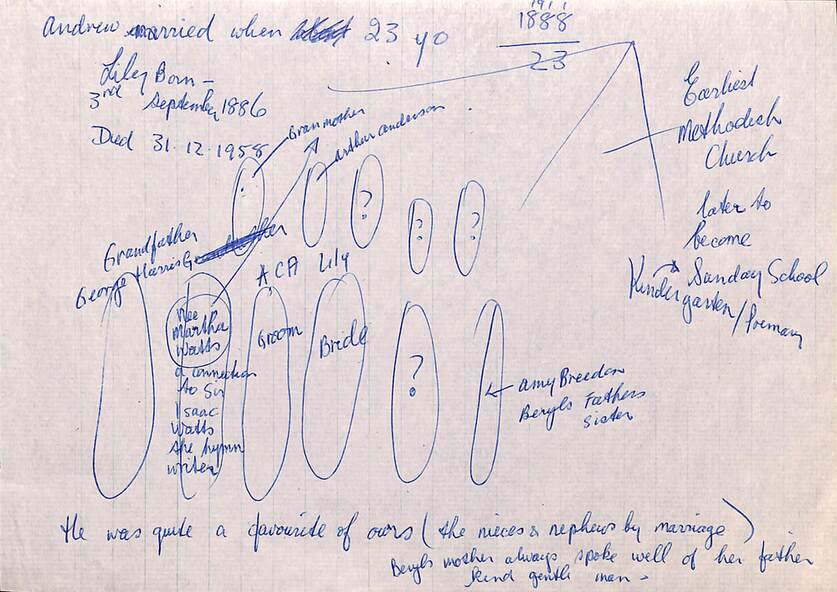 Andrew married when 23 yo
1911
1888
23
Lily Born -
3rd September 1886
Died 31.12.1958
Granmother
Arthur Anderson
Earliest
Methodist
Church
later to
become
Sunday School
Kindergarten/Primary
?
?
?
Grandfather
George Harris
ACA Lily
nee
Martha
Watts
a connection
to Sir
Isaac
Watts
the hymn
writer
Groom
Bride
?
Amy Breeden
Beryls Fathers
sister
He was quite a favourite of ours (the nieces & nephews by marriage)
Beryls mother always spoke well of her father
kind gentle man -